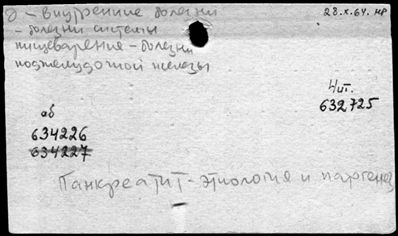 8 - Внутренние болезни
28.X.64. нр
- болезни системы
пищеварение - болезни
поджелудочной железы
Чит.
632725
аб
634226
634227
Панкреатит - этиология и патгенез